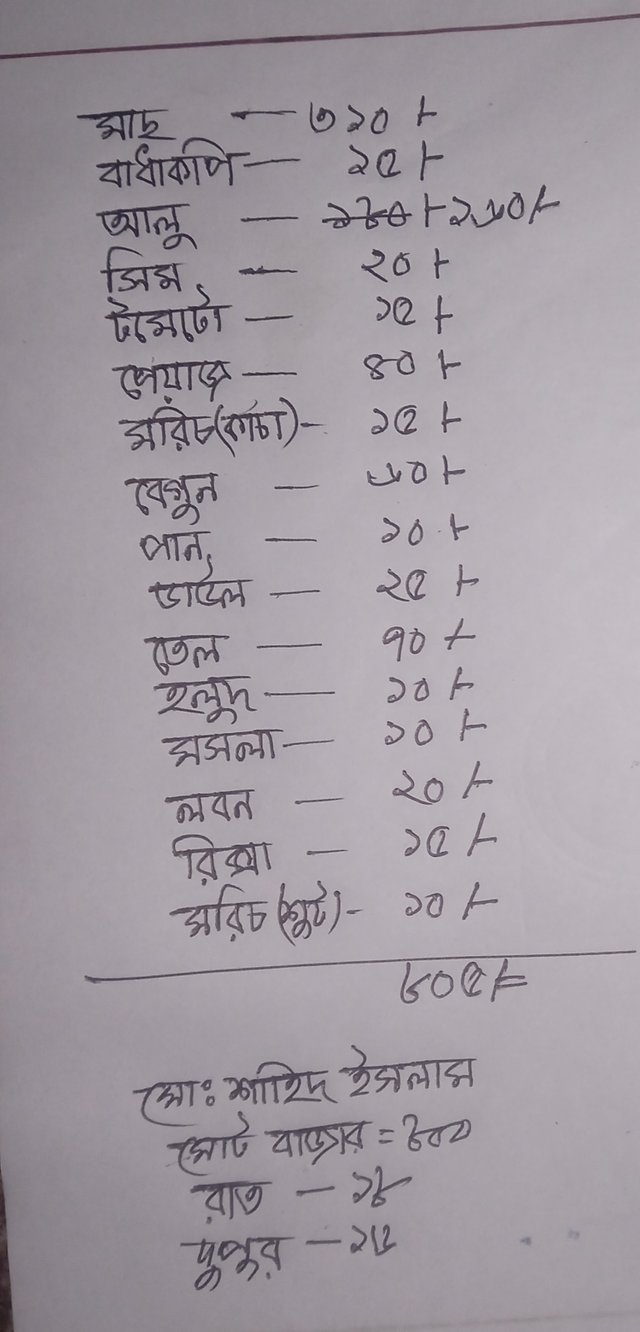 মাছ — ৩১০ /-
বাধাকপি — ১৫ /-
আলু — ১৮০ /- ১৬০ /-
সিম — ২০ /-
টমেটো — ১৫ /-
পেয়াজ — ৪০ /-
মরিচ (কাঁচা) - ১৫ /-
বেগুন — ৬০ /-
পান — ১০ /-
ডাইল — ২৫ /-
তেল — ৭০ /-
হলুদ — ১০ /-
মসলা — ১০ /-
লবন — ২০ /-
রিক্সা — ১৫ /-
মরিচ (শুট) - ১০ /-
৮০৫ /=
মোঃ শাহিদ ইসলাম
মোট বাজার = ৮০০
রাত — ১৮
দুপুর — ১৫